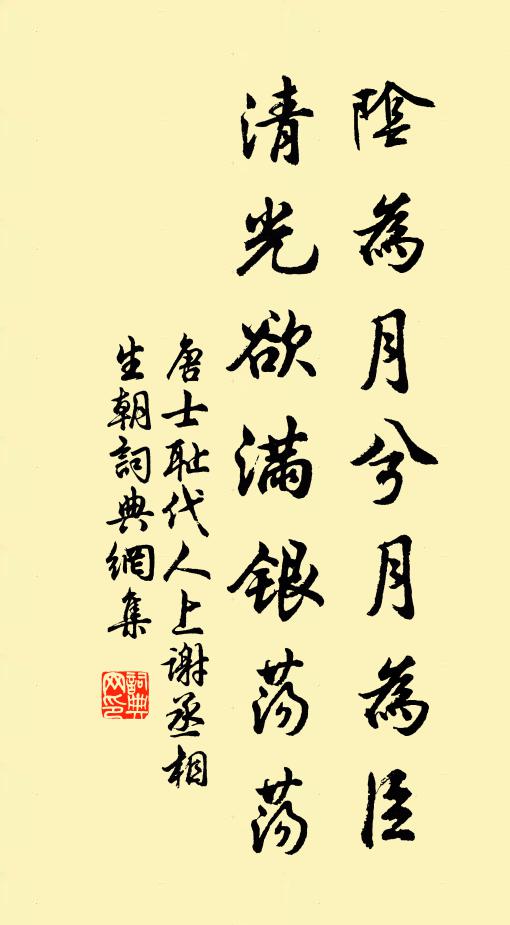 陰為月兮月為臣
清光欲滿銀蕩蕩
唐士耻代人上謝丞相
生朝詞典網集
詞典网印